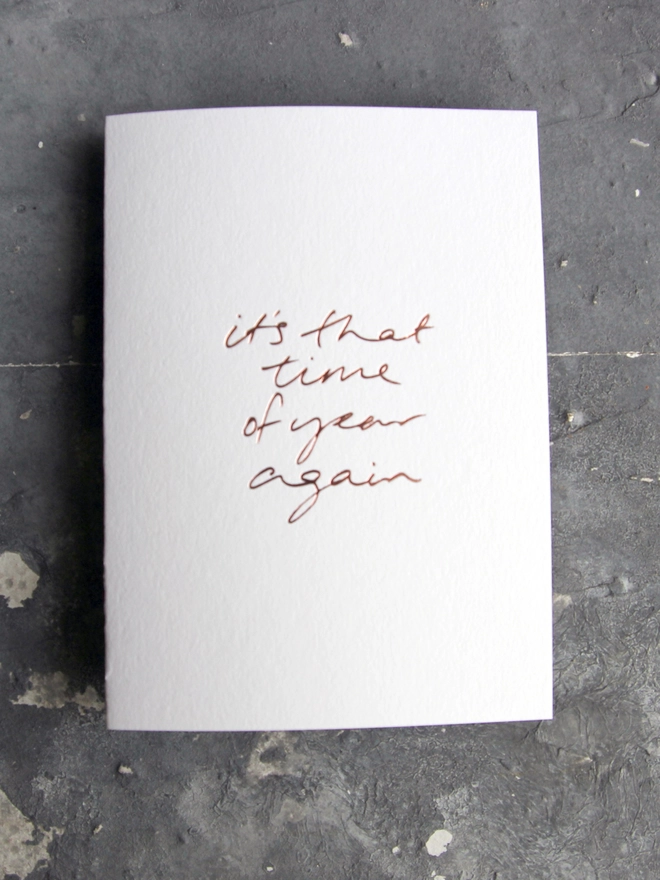 it's that
time
of year
again